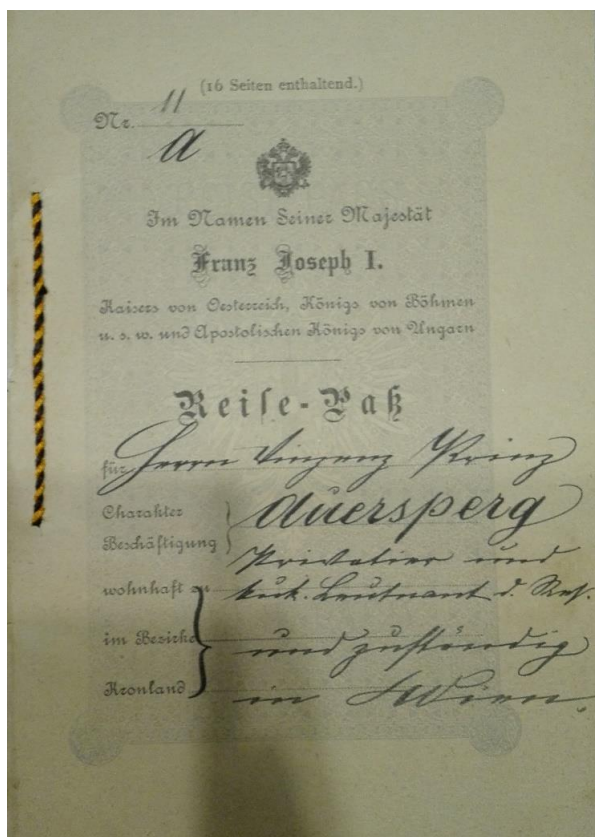 (16 Seiten enthaltend.)
Nr. 11
a
Im Namen Seiner Majestät
Franz Joseph I.
Kaisers von Oesterreich, Königs von Böhmen
u. s. w. und Apostolischen Königs von Ungarn
Reise-Paß
für Herrn Vinzenz Prinz
Charakter Auersperg
Beschäftigung Privatier und
wohnhaft zu k.u.k. Leutnant d. Res.
im Bezirke und zuständig
Kronland in Wien.